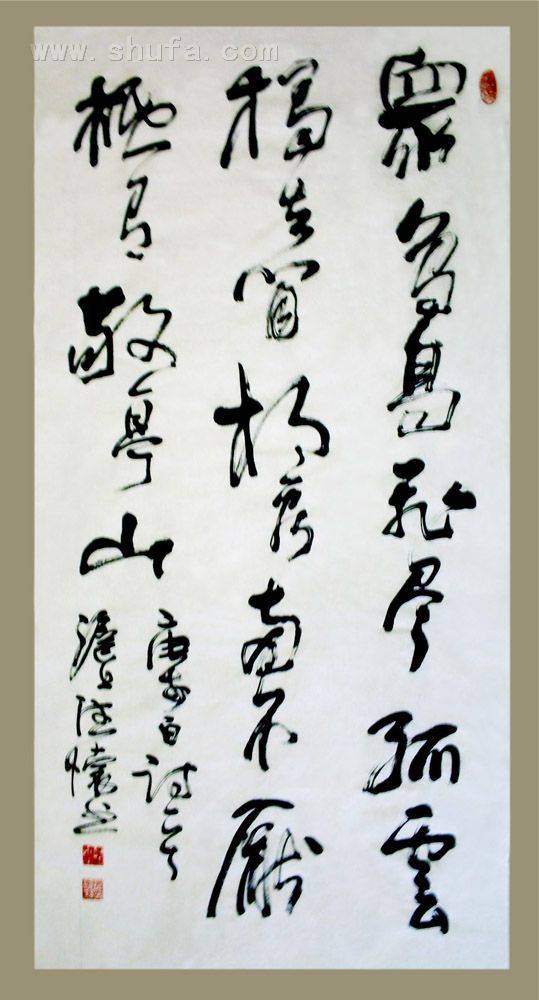 www.shufa.com
眾鳥高飛盡孤雲
獨去閒相看兩不厭
有敬亭山
唐李白詩一首
滬上懷書